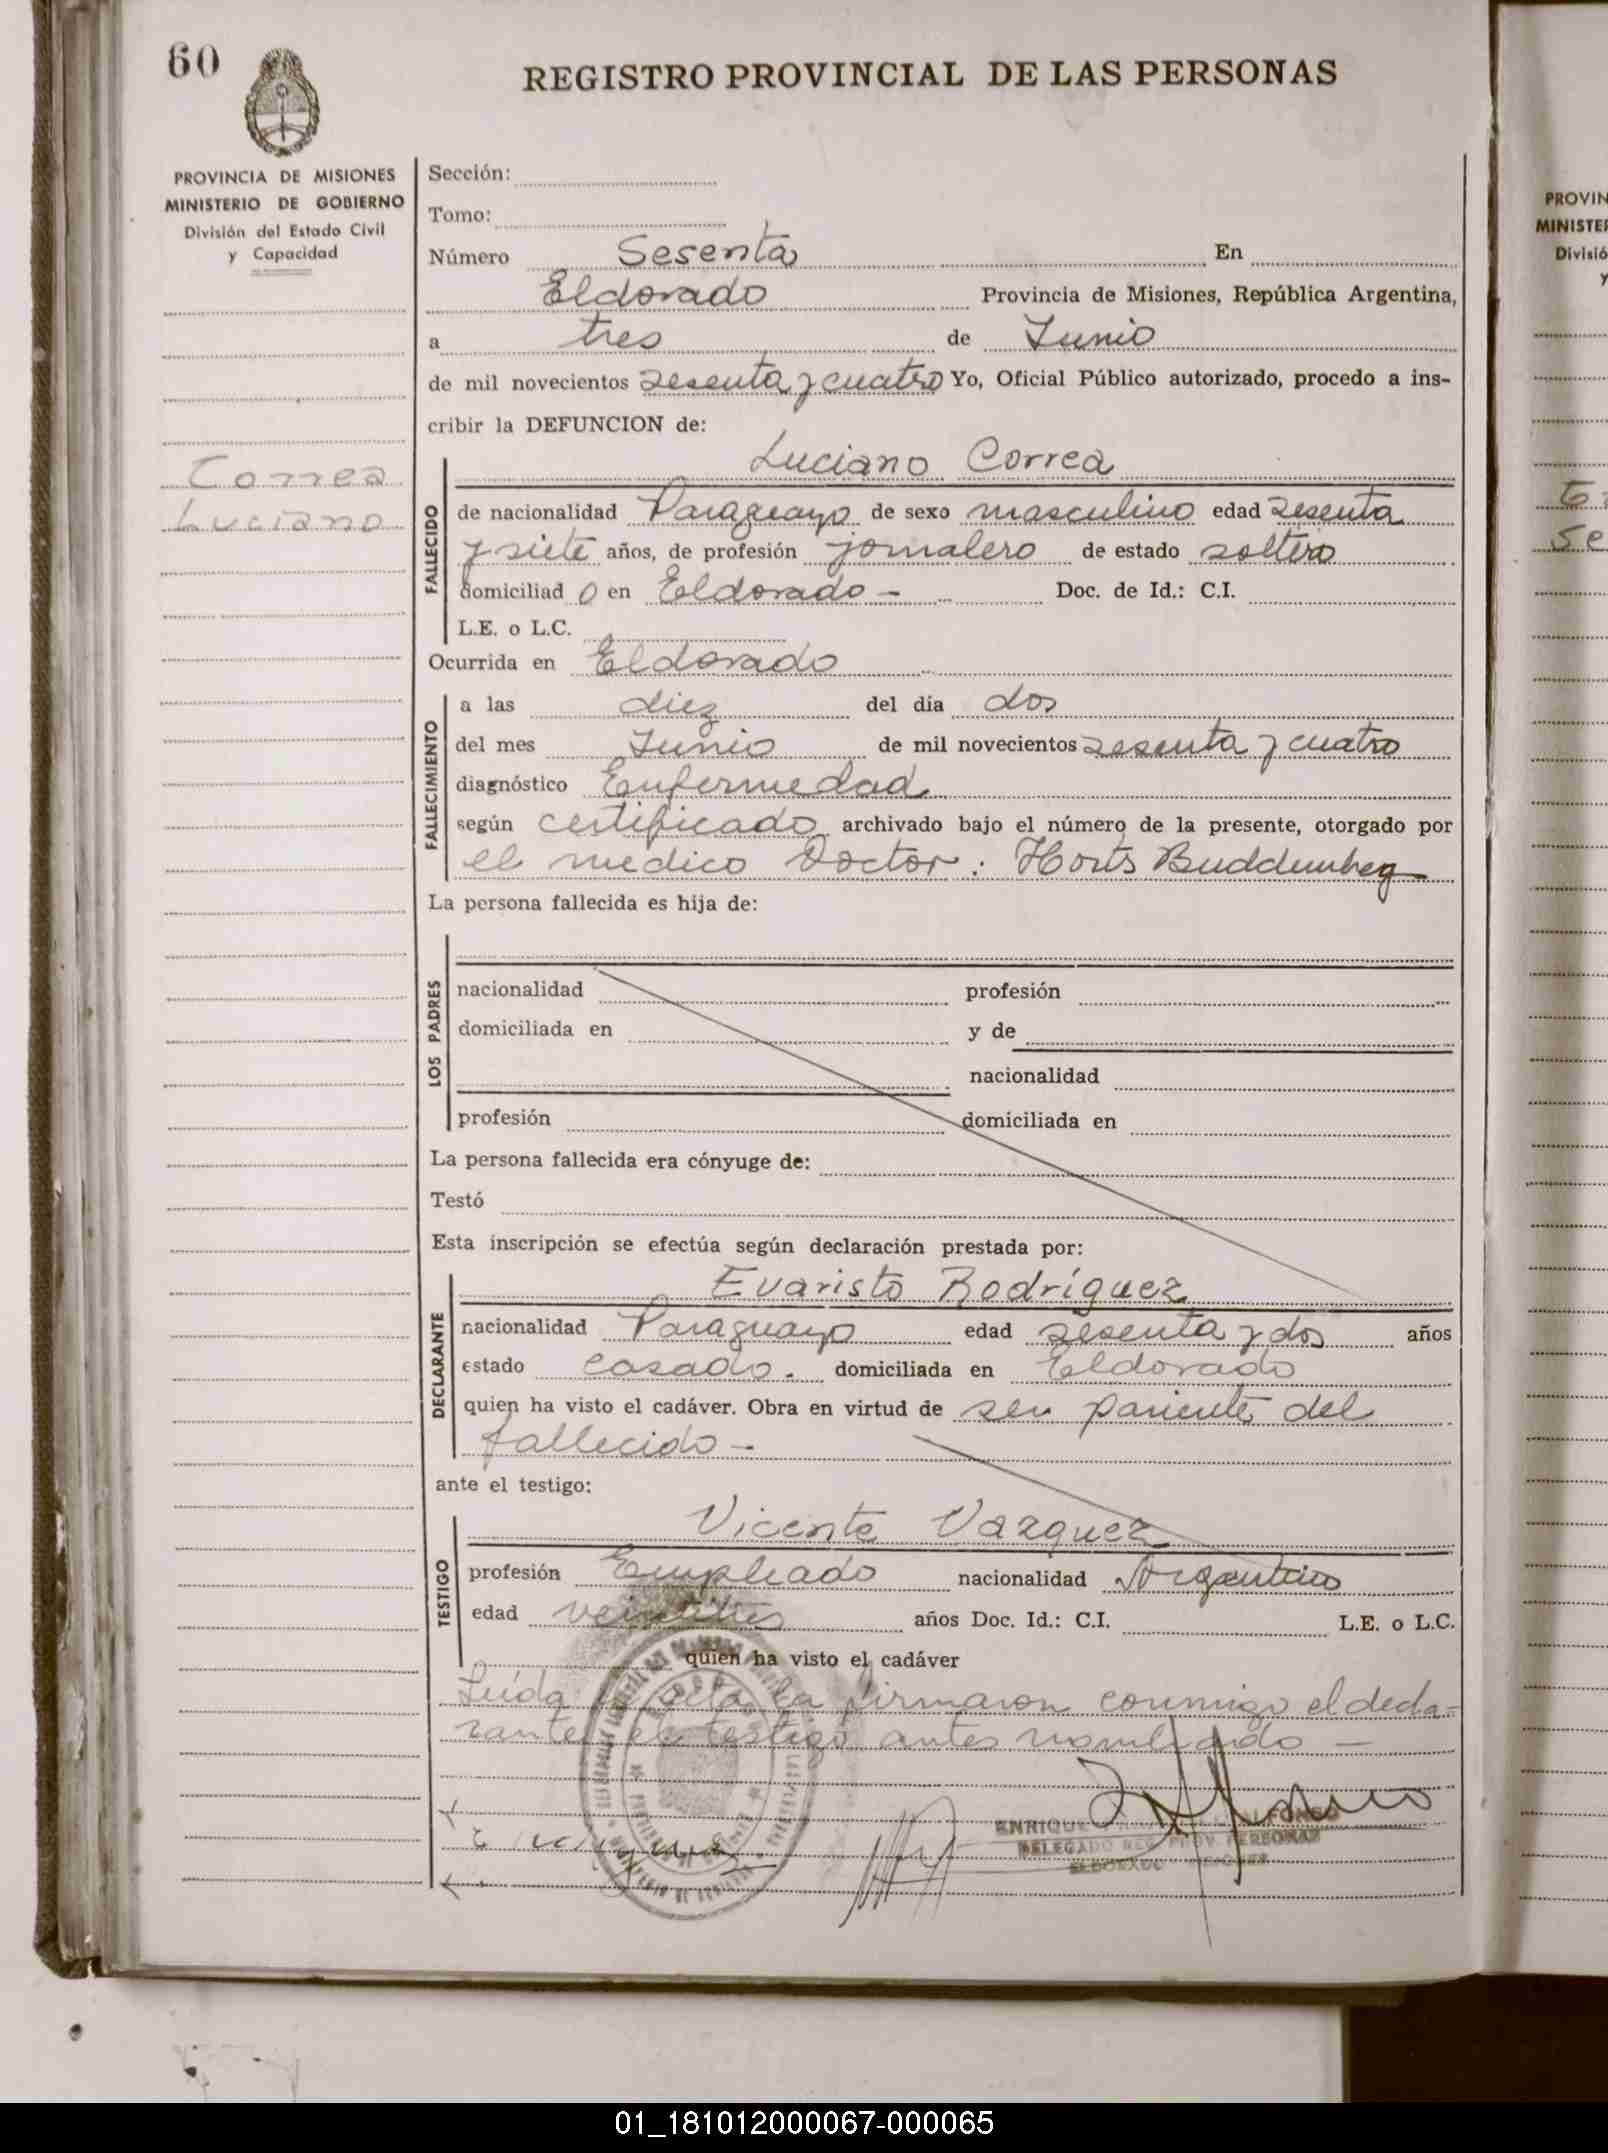 60
REGISTRO PROVINCIAL DE LAS PERSONAS
PROVINCIA DE MISIONES
MINISTERIO DE GOBIERNO
División del Estado Civil
y Capacidad
Correa
Luciano
Sección:
Tomo:
Número Sesenta En
Eldorado Provincia de Misiones, República Argentina,
a tres de Junio
de mil novecientos sesenta y cuatro Yo, Oficial Público autorizado, procedo a ins-
cribir la DEFUNCION de:
Luciano Correa
FALLECIDO
de nacionalidad Paraguayo de sexo masculino edad sesenta
y siete años, de profesión jornalero de estado soltero
domiciliad o en Eldorado - Doc. de Id.: C.I.
L.E. o L.C.
Ocurrida en Eldorado
FALLECIMIENTO
a las diez del día dos
del mes Junio de mil novecientos sesenta y cuatro
diagnóstico Enfermedad
según certificado archivado bajo el número de la presente, otorgado por
el medico Doctor: Horts Buddemberg
La persona fallecida es hija de:
LOS PADRES
nacionalidad profesión
domiciliada en y de
nacionalidad
profesión domiciliada en
La persona fallecida era cónyuge de:
Testó
Esta inscripción se efectúa según declaración prestada por:
Evaristo Rodríguez
DECLARANTE
nacionalidad Paraguayo edad sesenta y dos años
estado casado. domiciliada en Eldorado
quien ha visto el cadáver. Obra en virtud de ser pariente del
fallecido -
ante el testigo:
Vicente Vazquez
TESTIGO
profesión Empleado nacionalidad Argentino
edad veintitres años Doc. Id.: C.I. L.E. o L.C.
quien ha visto el cadáver
Leída el acta la firmaron conmigo el decla-
rante y el testigo antes nombrado -
ENRIQUE ALFONSO
DELEGADO REG. PROV. PERSONAS
ELDORADO MISIONES
PROVIN
MINISTER
Divisió
y
01_181012000067-000065